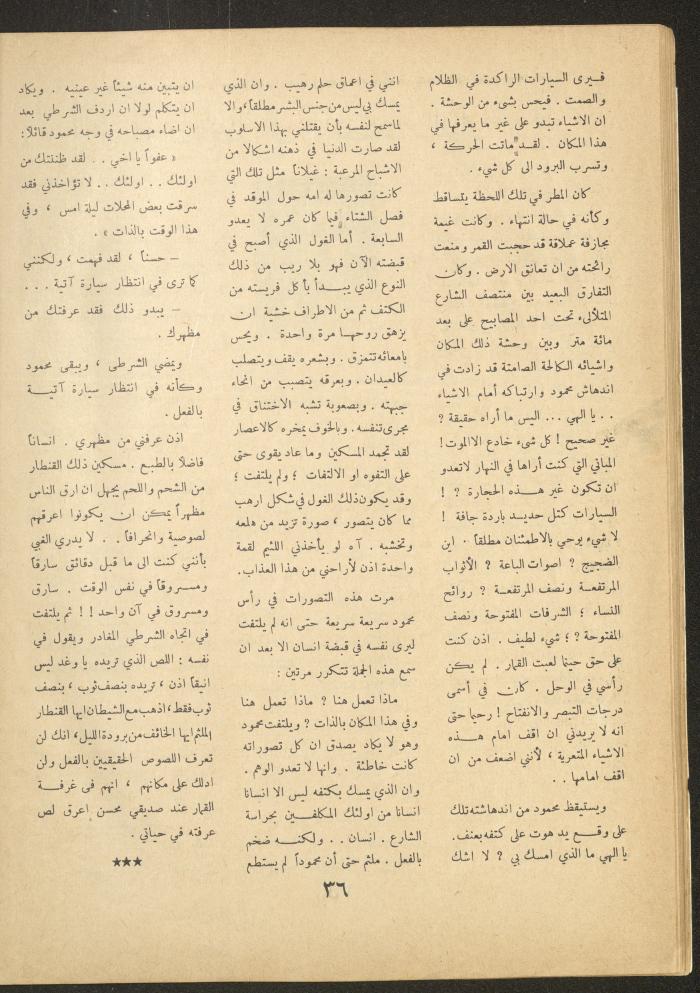 فيرى السيارات الراكدة في الظلام
والصمت . فيحس بشيء من الوحشة .
ان الاشياء تبدو على غير ما يعرفها في
هذا المكان . لقد ماتت الحركة ،
وتسرب البرود الى كل شيء .
كان المطر في تلك اللحظة يتساقط
وكأنه في حالة انتهاء . وكانت غيمة
مجازفة عملاقة قد حجبت القمر ومنعت
رائحته من ان تعانق الارض . وكان
التفارق البعيد بين منتصف الشارع
المتلألىء تحت احد المصابيح على بعد
مائة متر وبين وحشة ذلك المكان
واشيائه الكالحة الصامتة قد زادت في
اندهاش محمود وارتباكه أمام الاشياء
. . يا الهي ... اليس ما أراه حقيقة ?
غير صحيح ! كل شيء خادع الا الموت !
المباني التي كنت أراها في النهار لا تعدو
ان تكون غير هذه الحجارة ? !
السيارات كتل حديد باردة جافة !
لا شيء يوحي بالاطمئنان مطلقاً . اين
الضجيج ? اصوات الباعة ? الأثواب
المرتفعة ونصف المرتفعة ? روائح
النساء ؛ الشرفات المفتوحة ونصف
المفتوحة ? ؛ شيء لطيف . اذن كنت
على حق حينما لعبت القمار . لم يكن
رأسي في الوحل . كان في أسمى
درجات التبصر والانفتاح ! رحيما حتى
انه لا يريدني ان اقف امام هذه
الاشياء المتعرية ، لأنني اضعف من ان
اقف امامها . .
ويستيقظ محمود من اندهاشته تلك
على وقع يد هوت على كتفه بعنف .
يا الهي ما الذي امسك بي ? لا اشك
انني في اعماق حلم رهيب . وان الذي
يمسك بي ليس من جنس البشر مطلقاً ، والا
لما سمح لنفسه بأن يقتلني بهذا الاسلوب
لقد صارت الدنيا في ذهنه اشكالا من
الاشباح المرعبة : غيلاناً مثل تلك التي
كانت تصورها له امه حول الموقد في
فصل الشتاء فيما كان عمره لا يعدو
السابعة . أما الغول الذي أصبح في
قبضته الآن فهو بلا ريب من ذلك
النوع الذي يبدأ بأكل فريسته من
الكتف ثم من الاطراف خشية ان
يزهق روحها مرة واحدة . ويحس
بامعائه تتمزق . وبشعره يقف ويتصلب
كالعيدان . وبعرقه يتصبب من انحاء
جبهته . وبصعوبة تشبه الاختناق في
مجرى تنفسه . وبالخوف يمخره كالاعصار
لقد تجهمد المسكين وما عاد يقوى حتى
على التفوه او الالتفات ؛ ولم يلتفت ؛
وقد يكون ذلك الغول في شكل ارهب
مما كان يتصور ، صورة تزيد من هلعه
وتخشبه . آه لو يأخذني اللئيم لقمة
واحدة اذن لأراحني من هذا العذاب .
مرت هذه التصورات في رأس
محمود سريعة سريعة حتى انه لم يلتفت
ليرى نفسه في قبضة انسان الا بعد ان
سمع هذه الجملة تتكرر مرتين :
ماذا تعمل هنا ? ماذا تعمل هنا
وفي هذا المكان بالذات ? ويلتفت محمود
وهو لا يكاد يصدق ان كل تصوراته
كانت خاطئة . وانها لا تعدو الوهم .
وان الذي يمسك بكتفه ليس الا انسانا
انسانا من اولئك المكلفين بحراسة
الشارع . انسان . . ولكنه ضخم
بالفعل . ملثم حتى أن محموداً لم يستطع
ان يتبين منه شيئاً غير عينيه . ويكاد
ان يتكلم لولا ان اردف الشرطي بعد
ان اضاء مصباحه في وجه محمود قائلاً :
« عفواً يا اخي . . لقد ظننتك من
اولئك . . اولئك . . لا تؤاخذني فقد
سرقت بعض المحلات ليلة امس ، وفي
هذا الوقت بالذات » .
– حسناً ، لقد فهمت ، ولكنني
كما ترى في انتظار سيارة آتية . . .
– يبدو ذلك فقد عرفتك من
مظهرك .
ويمضي الشرطي ، ويبقى محمود
وكأنه في انتظار سيارة آتية
بالفعل .
اذن عرفني من مظهري . انساناً
فاضلاً بالطبع . مسكين ذلك القنطار
من الشحم واللحم يجهل ان ارق الناس
مظهراً يمكن ان يكونوا اعرقهم
لصوصية وانحرافاً . . لا يدري الغبي
بأنني كنت الى ما قبل دقائق سارقاً
ومسروقاً في نفس الوقت . سارق
ومسروق في آن واحد ! ! ثم يلتفت
في اتجاه الشرطي المغادر ويقول في
نفسه : اللص الذي تريده يا وغد ليس
انيقاً اذن ، تريده بنصف ثوب ، بنصف
ثوب فقط ، اذهب مع الشيطان ايها القنطار
الملثم ايها الخائف من برودة الليل ، انك لن
تعرف اللصوص الحقيقيين بالفعل ولن
ادلك على مكانهم ، انهم في غرفة
القمار عند صديقي محسن اعرق لص
عرفته في حياتي .
★★★
٣٦